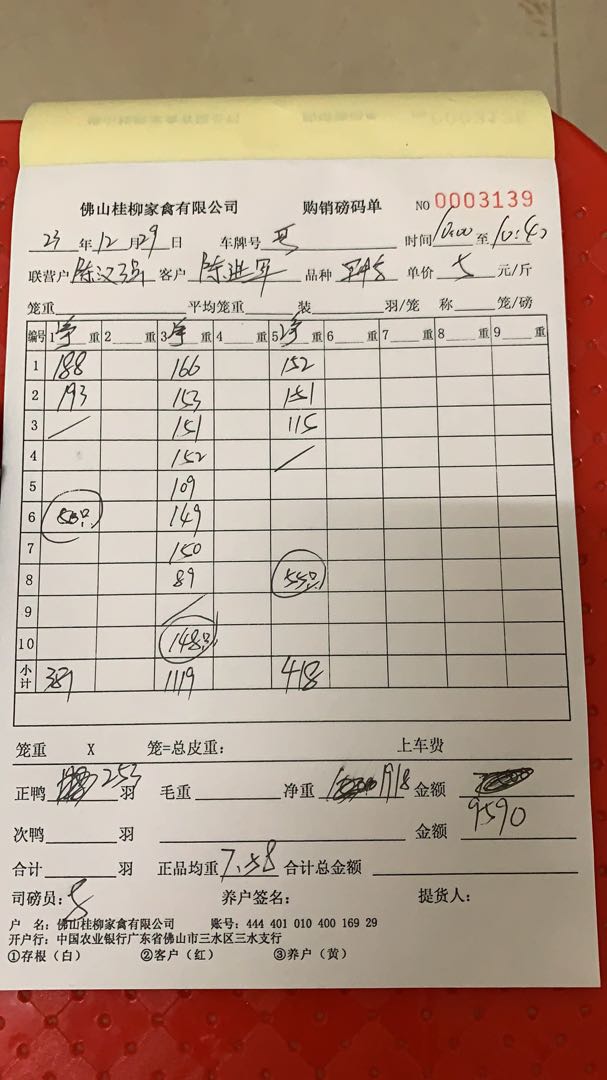 佛山桂柳家禽有限公司 购销磅码单 NO 0003139
23 年 12 月 29 日 车牌号 时间 10:00 至
联营户 陈汉强 客户 陈进军 品种 单价 5 元/斤
笼重 平均笼重 装 羽/笼 称 笼/磅
编号 1 净 重 2 重 3 净 重 4 重 5 净 重 6 重 7 重 8 重 9 重
1 188 166 152
2 193 153 151
3 / 151 115
4 152 /
5 109
6 149
7 150
8 89 55只
9 /
10 148只
小计 1119 418
笼重 X 笼=总皮重: 上车费
正鸭 253 羽 毛重 净重 1918 金额
次鸭 羽 金额 9590
合计 羽 正品均重 7.58 合计总金额
司磅员: 养户签名: 提货人:
户 名: 佛山桂柳家禽有限公司 账号: 444 401 010 400 169 29
开户行: 中国农业银行广东省佛山市三水区三水支行
①存根（白） ②客户（红） ③养户（黄）